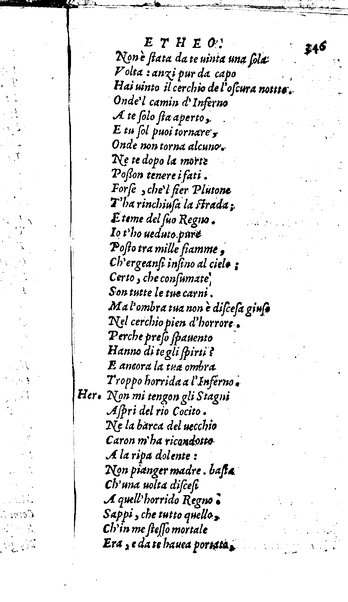 ETHEO. 346
Non è ſtata da te uinta una ſola
Volta : anzi pur da capo
Hai uinto il cerchio de l'oſcura notte.
Onde'l camin d'Inferno
A te ſolo ſta aperto,
E tu ſol puoi tornare,
Onde non torna alcuno.
Ne te dopo la morte
Poſſon tenere i fati.
Forſe, che'l fier Plutone
T'ha rinchiuſa la ſtrada;
E teme del ſuo Regno.
Io t'ho ueduto pure
Poſto tra mille fiamme,
Ch'ergeanſi inſino al cielo;
Certo, che conſumate
Son tutte le tue carni.
Ma l'ombra tua non è diſceſa giuſo
Nel cerchio pien d'horrore.
Perche preſo ſpauento
Hanno di te gli ſpirti?
E ancora la tua ombra
Troppo horrida a l'Inferno.
Her. Non mi tengon gli Stagni
Aſpri del rio Cocito.
Ne la barca del uecchio
Caron m'ha ricondotto
A la ripa dolente:
Non pianger madre. baſta
Ch'una uolta diſceſi
A quell'horrido Regno:
Sappi, che tutto quello,
Ch'in me ſteſſo mortale
Era, e da te hauea portato,